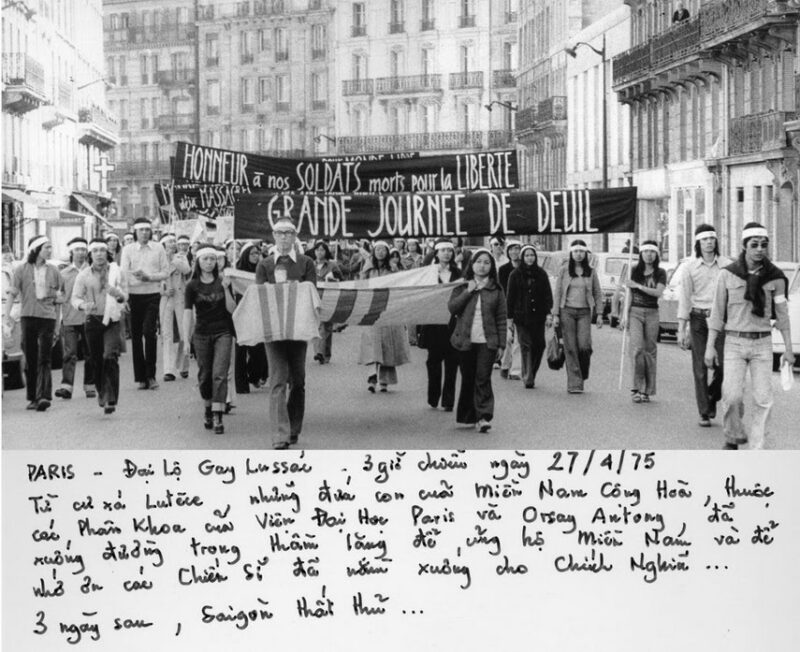 POUR MONDE LIBRE
HONNEUR à nos SOLDATS morts pour la LIBERTE
MASSACR
GRANDE JOURNEE DE DEUIL
PARIS - Đại Lộ Gay Lussac - 3 giờ chiều ngày 27/4/75
Từ cư xá Lutèce những đứa con của Miền Nam Cộng Hoà, thuộc
các Phân Khoa của Viện Đại Học Paris và Orsay Antony, đã
xuống đường trong thầm lặng để ủng hộ Miền Nam và để
nhớ ơn các Chiến Sĩ đã nằm xuống cho Chính Nghĩa ...
3 ngày sau, Saigon thất thủ ...